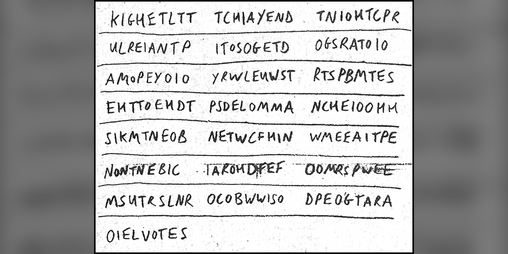 KIGHETLTT TCHIAYEND TNIOHTCPR
ULREIANTP ITOSOGETD OGSRATOIO
AMOPEYOIO YRWLEUWST RTSPBMTES
EHTTOEHDT PSDELOMMA NCHEIOOHH
SIKMTNEOB NETWCFHIN WMEEAITPE
NONTNEBIC
MSUTRSLNR OCOBWWISO DPEOGTARA
OIELVOTES